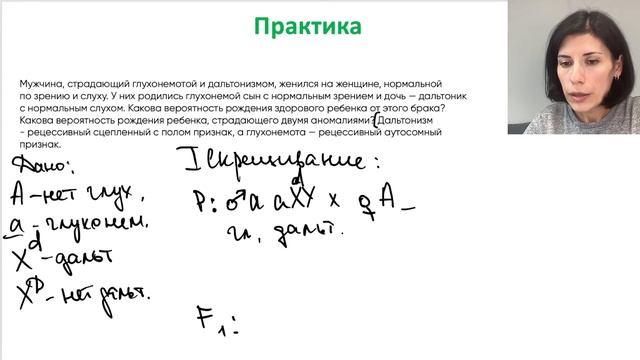 Практика
Мужчина, страдающий глухонемотой и дальтонизмом, женился на женщине, нормальной
по зрению и слуху. У них родились глухонемой сын с нормальным зрением и дочь — дальтоник
с нормальным слухом. Какова вероятность рождения здорового ребенка от этого брака?
Какова вероятность рождения ребенка, страдающего двумя аномалиями? Дальтонизм
- рецессивный сцепленный с полом признак, а глухонемота — рецессивный аутосомный
признак.
Дано:
A – нет глух,
a – глухонем.
X^d – дальт
X^D – не дальт.
I скрещивание:
P: ♂ a a X^d Y x ♀ A _
гл, дальт.
F₁: